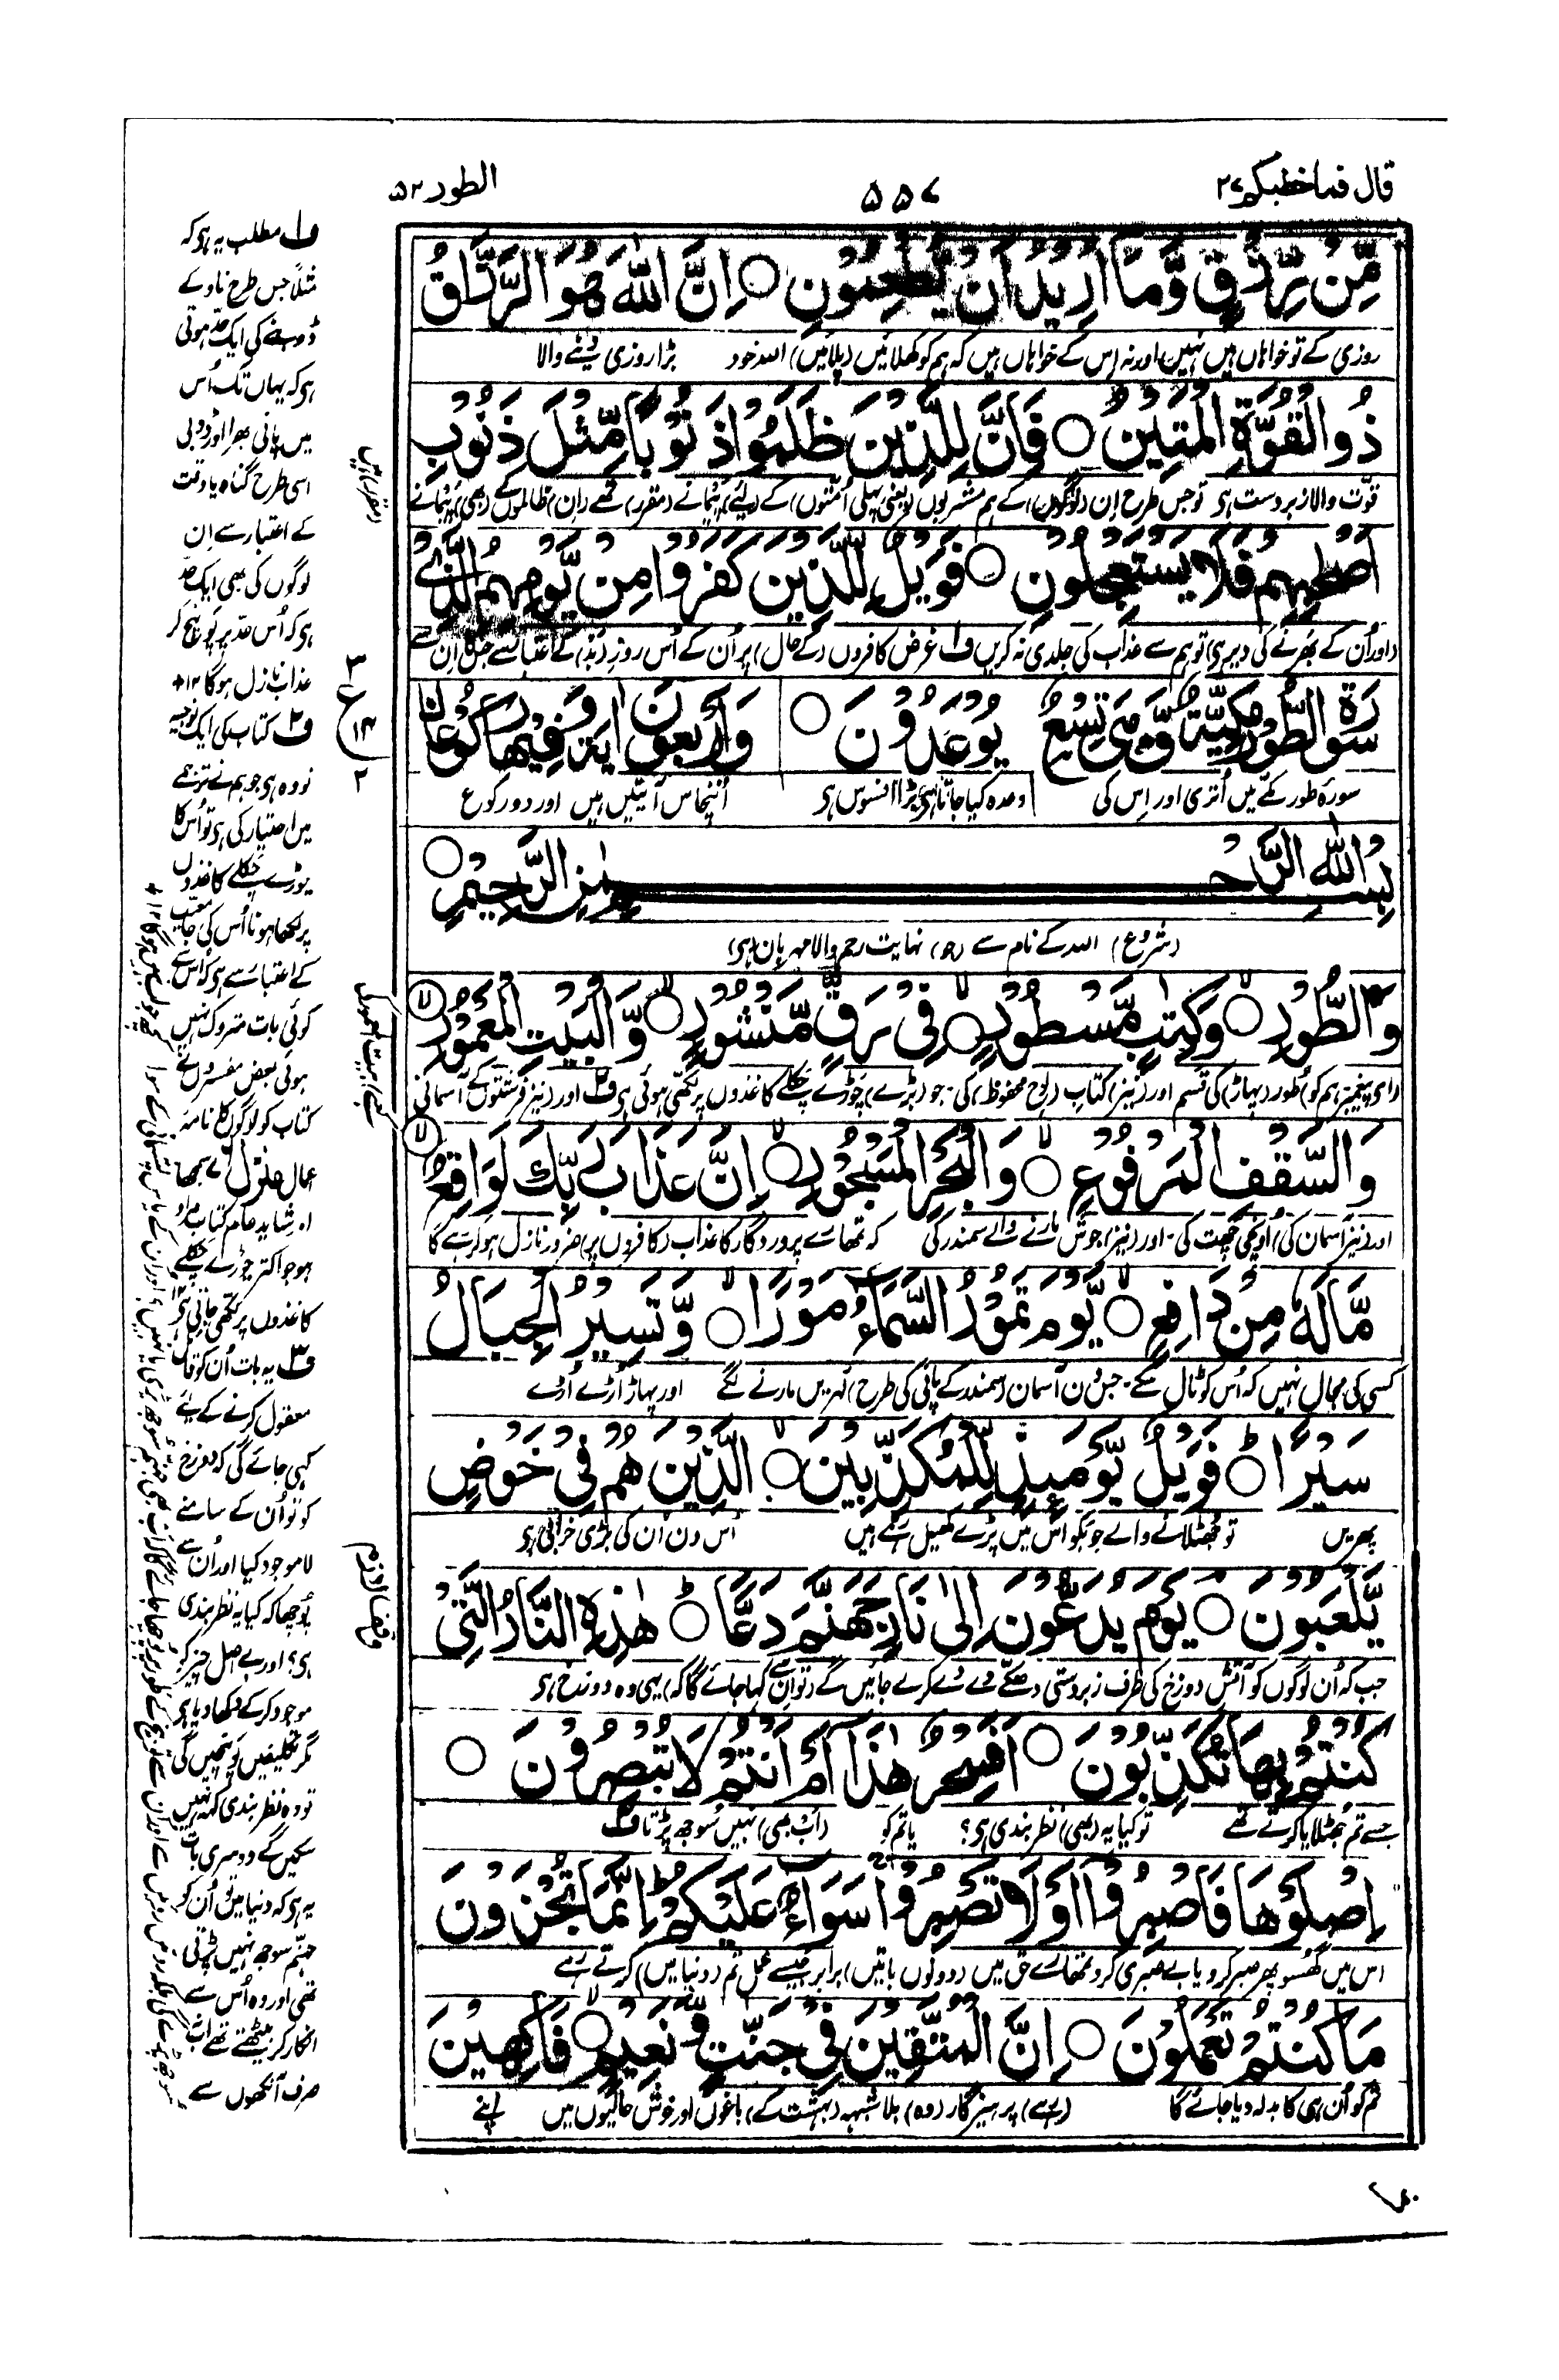 قال فما خطبکم ۲۷
۵۵۷
الطور ۵۲
مِّنْ رِّزْقٍ وَّمَاۤ اُرِیْدُ اَنْ یُّطْعِمُوْنِ ○ اِنَّ اللّٰهَ هُوَ الرَّزَّاقُ
روزی کے تو خواہاں ہیں نہیں اور نہ اِس کے خواہاں ہیں کہ ہم کو کھلائیں (پلائیں) اللہ خود بڑا روزی دینے والا
ذُو الْقُوَّةِ الْمَتِیْنُ ○ فَاِنَّ لِلَّذِیْنَ ظَلَمُوْا ذَنُوْبًا مِّثْلَ ذَنُوْبِ
قوّت والا زبردست ہی تو جس طرح اِن (لوگوں) کے ہم مشربوں (یعنی پہلی اُمّتوں) کے لیئے پیمانے (مقرر) تھے (اِن) ظالموں کے (بھی) پیمانے
اَصْحٰبِهِمْ فَلَا یَسْتَعْجِلُوْنِ ○ فَوَیْلٌ لِّلَّذِیْنَ كَفَرُوْا مِنْ یَّوْمِهِمُ الَّذِیْ
(اور اُن کے بھرنے کی دیر ہی) تو ہم سے عذاب کی جلدی نہ کریں ف۱ غرض کافروں (کے حال) پر اُن کے اُس روزِ (بد) کے اعتبار سے جس کا اِن سے
سورۃ الطور مکیۃ وہی تسع یُوْعَدُوْنَ ○ واربعون اٰیۃ وفیہا رکوعان
سورۂ طور مکے میں اُتری اور اِس کی وعدہ کیا جاتا ہی بڑا افسوس ہی اُننچاس آیتیں ہیں اور دو رکوع
بِسْمِ اللّٰهِ الرَّحْمٰنِ الرَّحِیْمِ ○
(شروع) اللہ کے نام سے (جو) نہایت رحم والا مہربان (ہی)
وَالطُّوْرِ ○ وَكِتٰبٍ مَّسْطُوْرٍ ○ فِیْ رَقٍّ مَّنْشُوْرٍ ○ وَّالْبَیْتِ الْمَعْمُوْرِ ○
(ای پیغمبر ہم کو) طور (پہاڑ) کی قسم اور (نیز) کتاب (لوح محفوظ) کی۔ جو (بڑے) چوڑے چکلے کاغذوں پر لکھی ہوئی ہی ف۲ اور (نیز) فرشتوں کے آسمانی
وَالسَّقْفِ الْمَرْفُوْعِ ○ وَالْبَحْرِ الْمَسْجُوْرِ ○ اِنَّ عَذَابَ رَبِّكَ لَوَاقِعٌ ○
اور (نیز آسمان کی) اونچی چھت کی۔ اور (نیز) جوش مارنے والے سمندر کی کہ تمھارے پروردگار کا عذاب (کافروں پر) ضرور نازل ہو کر رہے گا
مَّا لَهٗ مِنْ دَافِعٍ ○ یَّوْمَ تَمُوْرُ السَّمَآءُ مَوْرًا ○ وَّتَسِیْرُ الْجِبَالُ
کسی کی مجال نہیں کہ اُس کو ٹال سکے۔ جس دن آسمان (سمندر کے پانی کی طرح) لہریں مارنے لگے اور پہاڑ اُڑے اُڑے
سَیْرًا ○ فَوَیْلٌ یَّوْمَئِذٍ لِّلْمُكَذِّبِیْنَ ○ الَّذِیْنَ هُمْ فِیْ خَوْضٍ
پھریں تو جھٹلانے والے جو بکواس میں پڑے کھیل رہے ہیں اُس دن اُن کی بڑی خرابی ہی
یَّلْعَبُوْنَ ○ یَوْمَ یُدَعُّوْنَ اِلٰی نَارِ جَهَنَّمَ دَعًّا ○ هٰذِهِ النَّارُ الَّتِیْ
جب کہ اُن لوگوں کو آتش دوزخ کی طرف زبردستی دھکّے دے دے کرلے جائیں گے (تو اُن سے کہا جائے گا کہ) یہی وہ دوزخ ہی
كُنْتُمْ بِهَا تُكَذِّبُوْنَ ○ اَفَسِحْرٌ هٰذَاۤ اَمْ اَنْتُمْ لَا تُبْصِرُوْنَ ○
جسے تم جھٹلایا کرتے تھے تو کیا یہ (بھی) نظر بندی ہی؟ یا تم کو (اب بھی) نہیں سُوجھ پڑتا ف۳
اِصْلَوْهَا فَاصْبِرُوْۤا اَوْ لَا تَصْبِرُوْا سَوَآءٌ عَلَیْكُمْ اِنَّمَا تُجْزَوْنَ
اس میں گھُسو پھر صبر کرو یا بے صبری کرو تمھارے حق میں (دونوں باتیں) برابر جیسے عمل تم (دنیا میں) کرتے رہے
مَا كُنْتُمْ تَعْمَلُوْنَ ○ اِنَّ الْمُتَّقِیْنَ فِیْ جَنّٰتٍ وَّنَعِیْمٍ ○ فٰكِهِیْنَ
تم کو اُن ہی کا بدلہ دیا جائے گا (رہے) پرہیزگار (وہ) بلاشبہہ (بہشت کے) باغوں اور خوش حالیوں میں اپنے
ف۱ مطلب یہ ہی کہ
مثلاً جس طرح ناو کے
ڈوبنے کی ایک حد ہوتی
ہی کہ یہاں تک اُس
میں پانی بھرا اور ڈوبی
اسی طرح گناہ یا وقت
کے اعتبار سے اِن
لوگوں کی بھی ایک حد
ہی کہ اُس حد پر پہنچ کر
عذاب نازل ہو گا ۱۲
ف۲ کتاب کی ایک توجیہ
تو وہ ہی جو ہم نے ترجمے
میں اختیار کی ہی تو اُس کا
چوڑے چکلے کاغذوں
پر لکھا ہونا اُس کی جامعیت
کے اعتبار سے ہی کہ اُس سے
کوئی بات متروک نہیں
ہوئی بعض مفسروں نے
کتاب کو لوگوں کا نامۂ
اعمال سمجھا
اور شاید عام کتاب مراد
ہو جو اکثر چوڑے چکلے
کاغذوں پر لکھی جاتی ہی ۱۲
ف۳ یہ بات اُن کو قائل
معقول کرنے کے لیئے
کہی جائے گی کہ دوزخ
کو تو اُن کے سامنے
لا موجود کیا اور اُن سے
پوچھا کہ کیا یہ نظر بندی
ہی؟ اور بے اصل چیز کو
موجود کرکے دکھا دیا ہی
مگر تکلیفیں پہنچیں گی
تو وہ نظر بندی کہہ نہیں
سکیں گے دوسری بات
یہ ہی کہ دنیا میں تو اُن کو
جہنّم سوجھ نہیں پڑتی
تھی اور وہ اُس سے
انکار کر بیٹھتے تھے اب
صرف آنکھوں سے
۳
ع
۱۴
۲